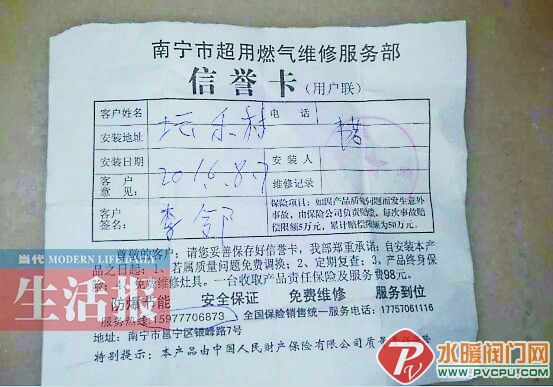 南宁市超用燃气维修服务部
信誉卡（用户联）
客户姓名 电话
安装地址 坛乐村
安装日期 2016.8.7 安装人
客户意见： 维修记录
客户签名： 保险项目：如因产品质量问题而发生意外
事故，由保险公司负责赔偿，每次事故赔
偿限额5万元，累计赔偿限额为50万元。
尊敬的客户：请您妥善保存好信誉卡，我部郑重承诺：自安装本产
品之日起：1、若属质量问题免费调换；2、定期复查；3、产品终身保
免费维修灶具。一台收取产品责任保险及服务费98元。
防爆节能 安全保证 免费维修 服务到位
服务热线：15977706873 全国保险销售统一服务电话：17757061116
地址：南宁市邕宁区银峰路7号
特别提示：本产品由中国人民财产保险有限公司质
当代
MODERN LIFE DAILY
生活报
水暖阀门网
WWW.PVCPU.COM